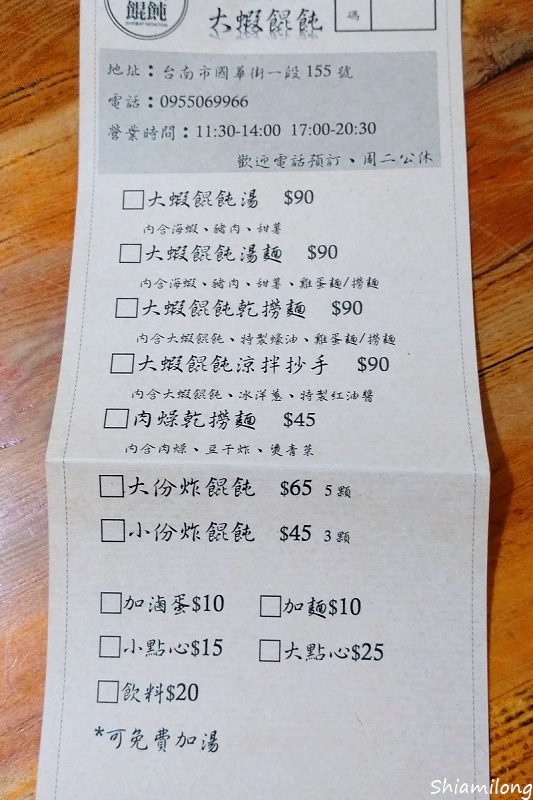 餛飩
大蝦餛飩
碼
地址：台南市國華街一段155號
電話：0955069966
營業時間：11:30-14:00 17:00-20:30
歡迎電話預訂、周二公休
□大蝦餛飩湯 $90
內含海蝦、豬肉、甜薯
□大蝦餛飩湯麵 $90
內含海蝦、豬肉、甜薯、雞蛋麵/撈麵
□大蝦餛飩乾撈麵 $90
內含大蝦餛飩、特製蠔油、雞蛋麵/撈麵
□大蝦餛飩涼拌抄手 $90
內含大蝦餛飩、冰洋蔥、特製红油醬
□肉燥乾撈麵 $45
內含肉燥、豆干炸、燙青菜
□大份炸餛飩 $65 5顆
□小份炸餛飩 $45 3顆
□加滷蛋$10 □加麵$10
□小點心$15 □大點心$25
□飲料$20
*可免費加湯
Shiamilong